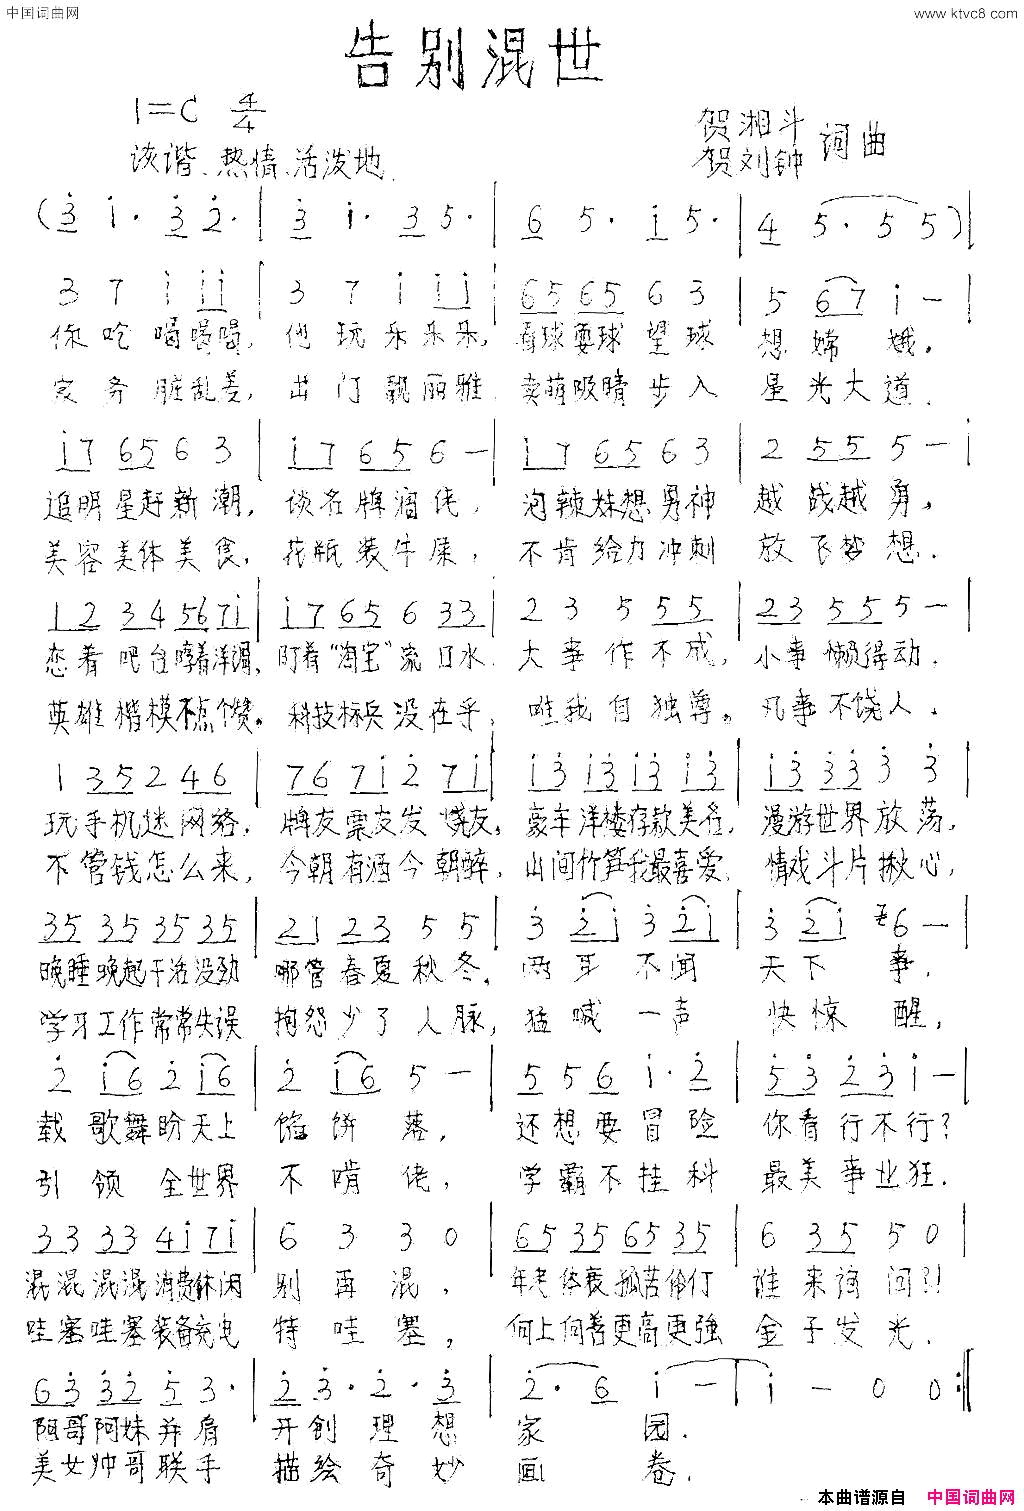 中国词曲网
www.ktvc8.com
告别混世
1=C 4/4
贺湘斗
贺刘钟 词曲
诙谐、热情、活泼地
(3 i· 3 2· | 3 i· 3 5· | 6 5· i 5· | 4 5· 5 5)|
3 7 i i i | 3 7 i i i | 65 65 6 3 | 5 67 i — |
你吃喝喝喝，他玩乐乐乐，看球耍球望球想嫦娥。
家务脏乱差，出门靓丽雅．卖萌吸睛步入星光大道．
i7 65 6 3 | i7 65 6 — | i7 65 6 3 | 2 55 5 — |
追明星赶新潮，谈名牌 佬，泡辣妹想男神越战越勇，
美容美体美食，花瓶装牛屎，不肯给力冲刺放飞梦想．
12 34 56 7i | i7 65 6 33 | 2 3 5 55 | 23 55 5 — |
恋着吧台哼着洋调，盯着“淘宝”流口水．大事作不成，小事懒得动．
英雄楷模不点个赞。科技标兵没在乎，唯我自独尊。凡事不饶人．
1 35 2 46 | 76 7i 2 7i | i3 i3 i3 i3 | i3 33 3 3 |
玩手机迷网络，牌友票友发烧友，豪车洋楼存款美名，漫游世界放荡，
不管钱怎么来，今朝有酒今朝醉，山间竹笋我最喜爱，情戏斗片揪心，
35 35 35 35 | 21 23 5 5 | 3 2i 3 2i | 3 2i 6 — |
晚睡晚起干活没劲哪管春夏秋冬，两耳不闻天下事，
学习工作常常失误抱怨少了人脉，猛喊一声快惊醒，
2 i6 2 i6 | 2 i6 5 — | 5 5 6 i· 2 | 53 23 i — |
载歌舞盼天上馅饼落，还想要冒险你看行不行？
引领全世界不啃佬，学霸不挂科最美事业狂．
33 33 4i 7i | 6 3 3 0 | 65 35 65 35 | 6 35 5 0 |
混混混混消费休闲别再混，年老体衰孤苦伶仃谁来询问？！
哇塞哇塞装备充电特哇塞，向上向善更高更强金子发光．
63 32 5 3· | 2 3· 2· 3 | 2· 6 i — | i — 0 0 :‖
阿哥阿妹并肩开创理想家园．
美女帅哥联手描绘奇妙画卷．
本曲谱源自 中国词曲网